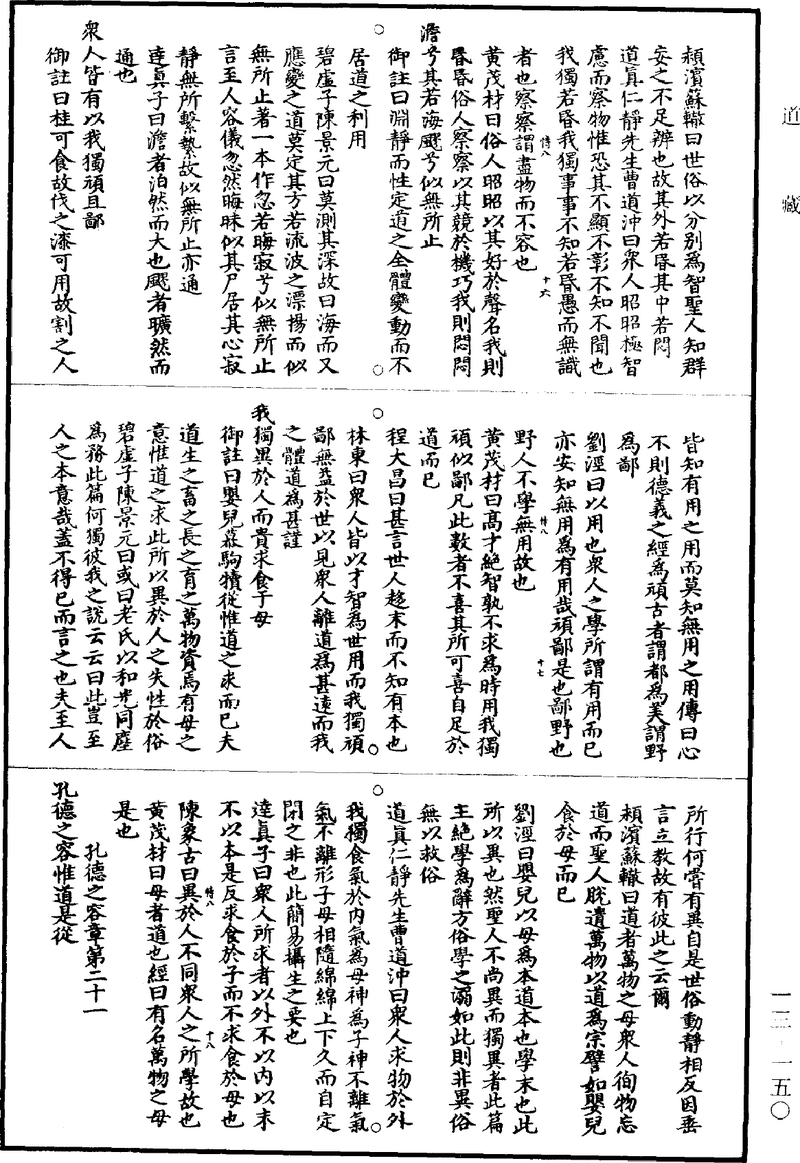 道藏
潁濱蘇轍曰世俗以分别爲智聖人知群
妄之不足辨也故其外若昏其中若悶
道真仁靜先生曹道沖曰衆人昭昭極智
慮而察物惟恐其不顯不彰不知不聞也
我獨若昏我獨事事不知若昏愚而無識
者也察察謂盡物而不容也
黃茂材曰俗人昭昭以其好於聲名我則
昏昏俗人察察以其競於機巧我則悶悶
澹兮其若海飂兮似無所止
御註曰淵靜而性定道之全體變動而不
居道之利用
碧虛子陳景元曰莫測其深故曰海而又
應變之道莫定其方若流波之漂揚而似
無所止著一本作忽若晦寂兮似無所止
言至人容儀忽然晦昧似其尸居其心寂
靜無所繫縶故似無所止亦通
達真子曰澹者泊然而大也飂者曠然而
通也
衆人皆有以我獨頑且鄙
御註曰桂可食故伐之漆可用故割之人
特八
十六
皆知有用之用而莫知無用之用傳曰心
不則德義之經爲頑古者謂都爲美謂野
爲鄙
劉涇曰以用也衆人之學所謂有用而已
亦安知無用爲有用哉頑鄙是也鄙野也
野人不學無用故也
黃茂材曰高才絕智孰不求爲時用我獨
頑似鄙凡此數者不喜其所可喜自足於
道而已
程大昌曰甚言世人趍末而不知有本也
林東曰衆人皆以才智爲世用而我獨頑
鄙無益於世以見衆人離道爲甚遠而我
之體道爲甚謹
我獨異於人而貴求食于母
御註曰嬰兒慕駒犢從惟道之求而已夫
道生之畜之長之育之萬物資焉有母之
意惟道之求此所以異於人之失性於俗
碧虛子陳景元曰或曰老氏以和光同塵
爲務此篇何獨彼我之說云云曰此豈至
人之本意哉蓋不得已而言之也夫至人
特八
十七
所行何嘗有異自是世俗動靜相反因垂
言立教故有彼此之云爾
潁濱蘇轍曰道者萬物之母衆人徇物忘
道而聖人脫遺萬物以道爲宗譬如嬰兒
食於母而已
劉涇曰嬰兒以母爲本道本也學末也此
所以異也然聖人不尚異而獨異者此篇
主絕學爲辭方俗學之溺如此則非異俗
無以救俗
道真仁靜先生曹道沖曰衆人求物於外
我獨食氣於内氣爲母神爲子神不離氣
氣不離形子母相隨綿綿上下久而自定
閉之非也此簡易攝生之要也
達真子曰衆人所求者以外不以内以末
不以本是反求食於子而不求食於母也
陳象古曰異於人不同衆人之所學故也
黃茂材曰母者道也經曰有名萬物之母
是也
孔德之容章第二十一
孔德之容惟道是從
特八
十八
一三—一五〇